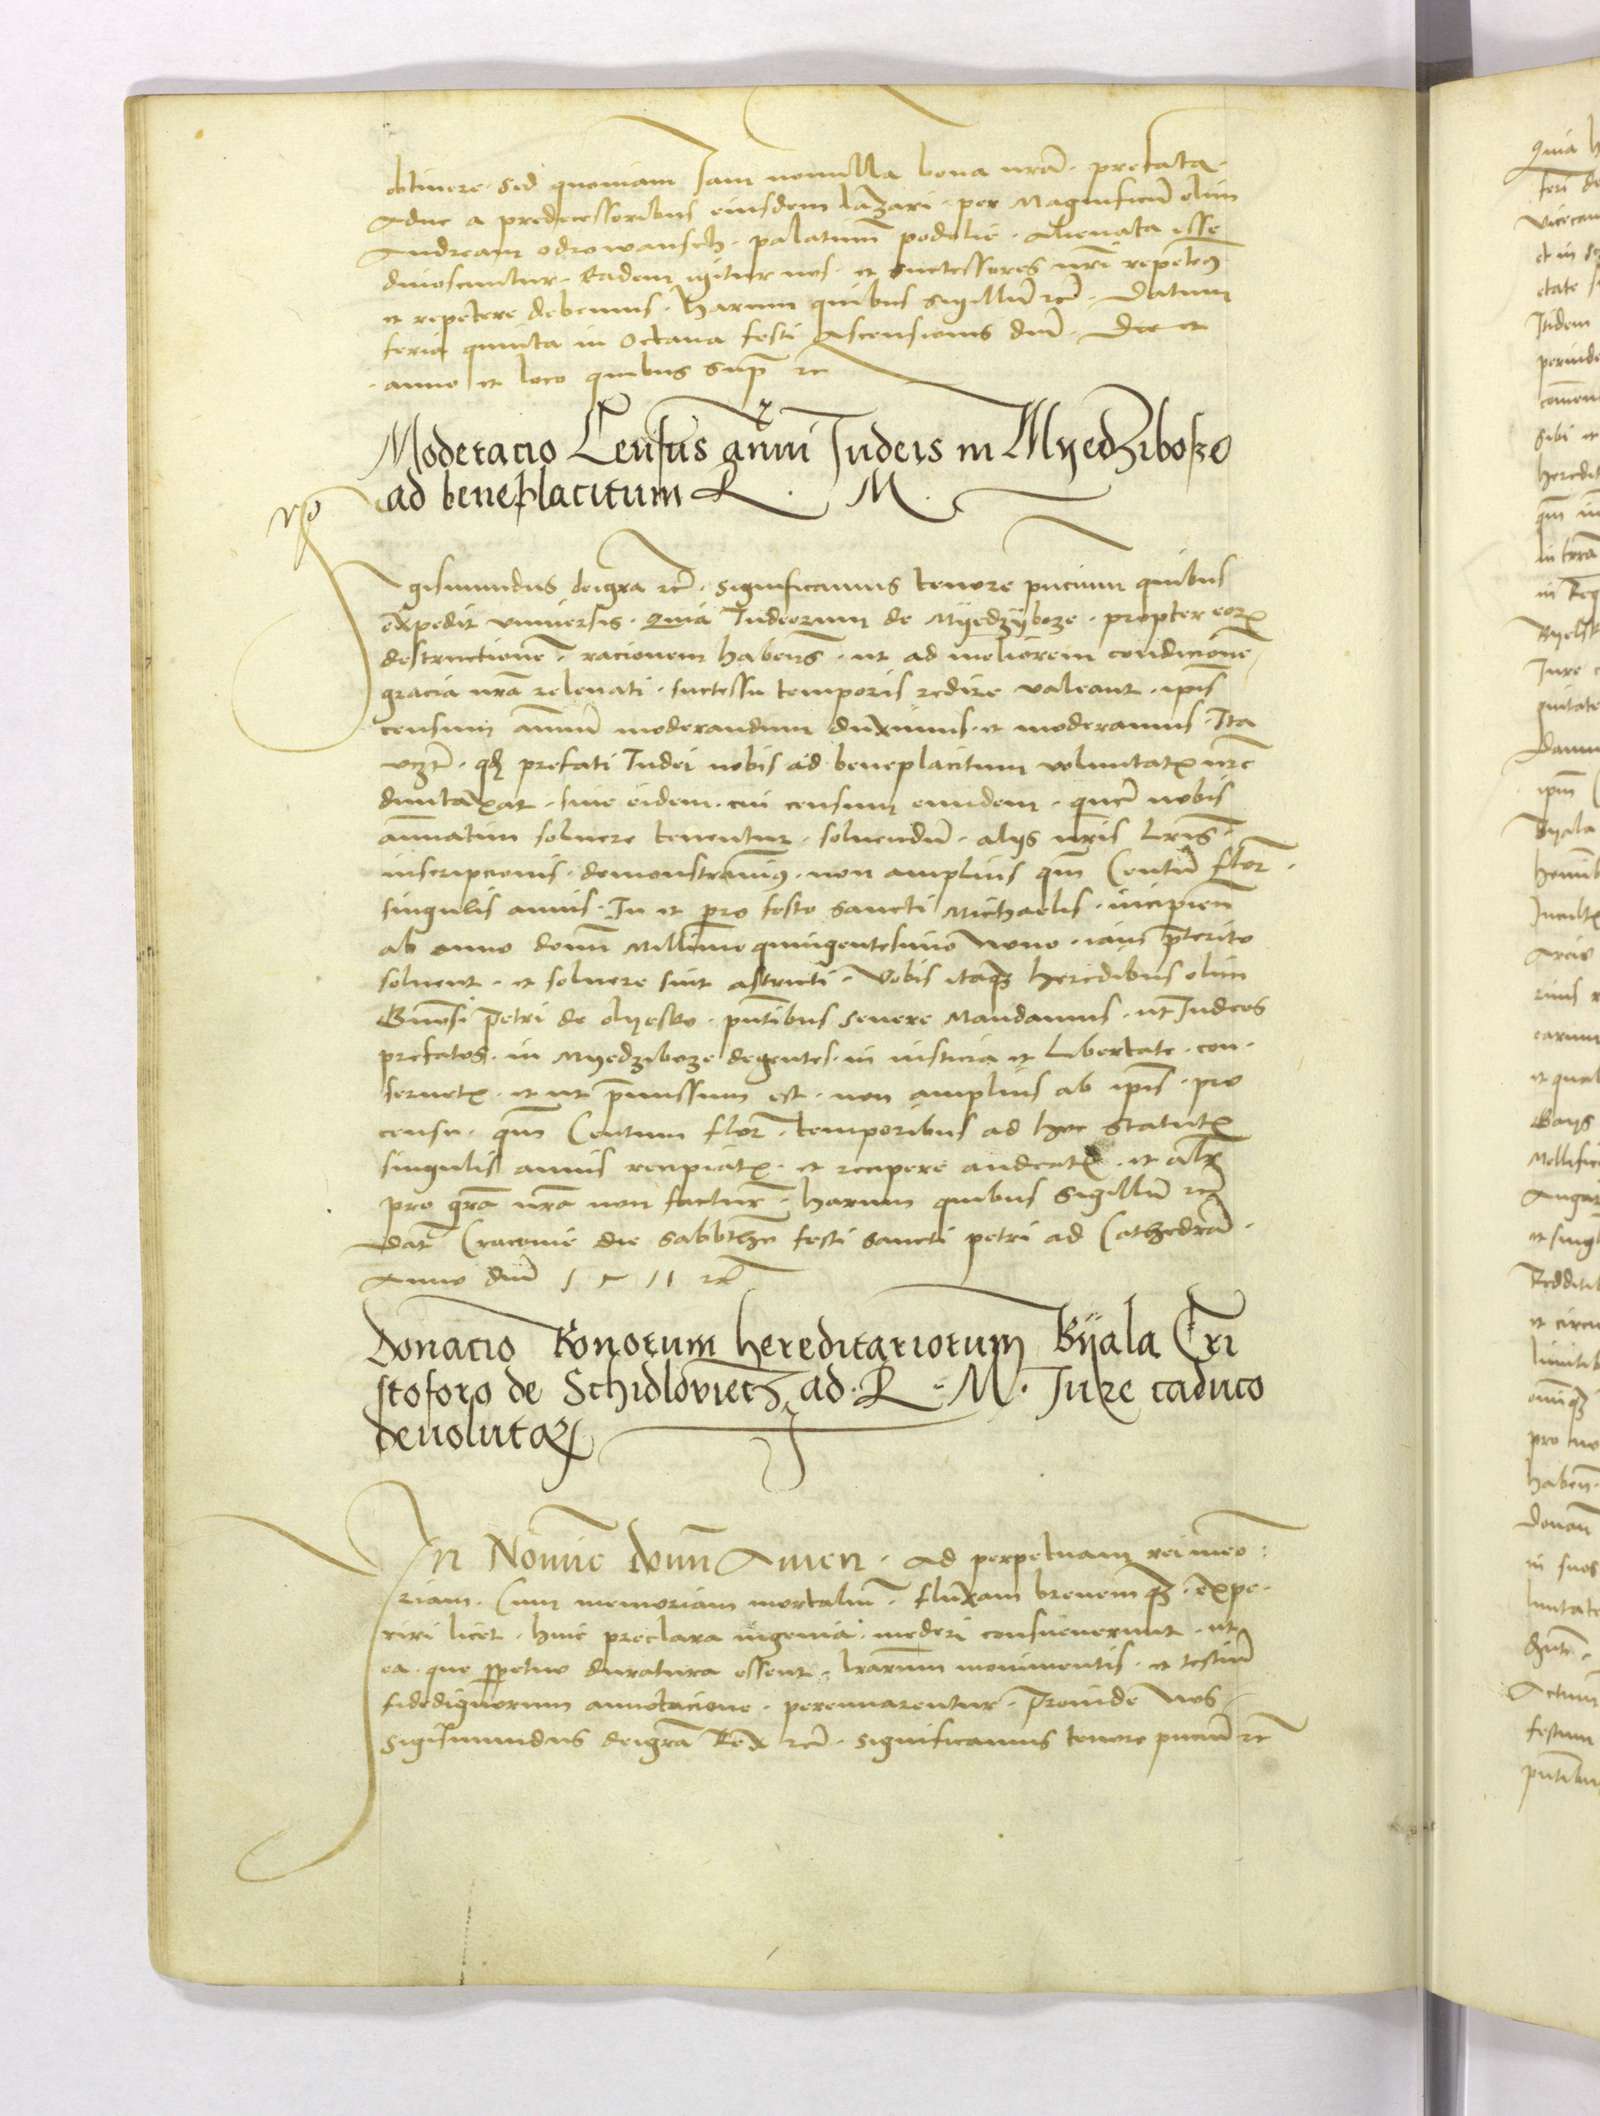 obtinere · sed quoniam Jam nonnulla bona nrã · prefata ·
Aduc a predecessoribus eiusdem lazari · per Magnificũ olim
Andream odrowansch · palatinum podolie · Alienata esse
dinoscuntur · Eadem igitur nos · et successores nri repetere
et repetere debemus · harum quibus sigillũ rcẽ · Datum
feria quinta in Octaua festi Ascensionis dnĩ · Die et
anno et loco quibus supra rc
Moderacio Census annui Judeis in Myedziboze
ad beneplacitum R · M ·
gismundus dei gra rcẽ · significamus tenore pncium quibus
expedit vniuersis · Quia Judeorum de Myedzyboze · propter eorum
destructionẽ · racionem habens · ut ad meliorem condicionẽ
gracia nrã releuati · successu temporis redire valeant · ipis
censum annũ moderandum duximus · et moderamus · Ita
vczt · qd prefati Judei nobis ad beneplacitum voluntatis nre
duntaxat · siue eidem · cui censum eundem · quẽ nobis
annuatim soluere tenentur · soluendũ · alijs nris Lris
inscripcionis · demonstrauimus · non amplius qm Centũ flor ·
singulis annis · In et pro festo sancti Michaelis · incipien
ab anno domi Millimo quingentesimo Nono · iam preterito
soluent · et soluere sint astricti · Vobis itaqz heredibus olim
Gnosi Petri de olyesko · pntibus seuere Mandamus · ut Judeos
prefatos · in Myedziboze degentes · in iusticia et Libertate · con ·
seruetis · et ut premissum est · non amplius ab ipis · pro
censu · qm Centum flor · temporibus ad hoc statutis
singulis annis recipiatis · et recipere audeatis · et alr
pro gra nra non facturi · harum quibus sigillũ rcẽ
Dat Cracouie die sabbtho festi sancti petri ad Cathedrã ·
Anno dnĩ 1511 rc
Donacio Bonorum hereditariorum Byala Cri
stoforo de Schidloviecz ad · R · M · Jure caduco
deuolutorum
In Nomine domi Amen · ad perpetuam rei meo :
riam · Cum memoriam mortaliũ · fluxam breuemqz · expe ·
riri licet · huic preclara ingenia · mederi consueuerunt · ut
ea · que perpetuo duratura essent · lrarum monimentis · et testiũ
fidedignorum annotacione · perennarentur · Proinde Nos
Sigismundus dei gra Rex rcẽ · significamus tenore pnciũ rc